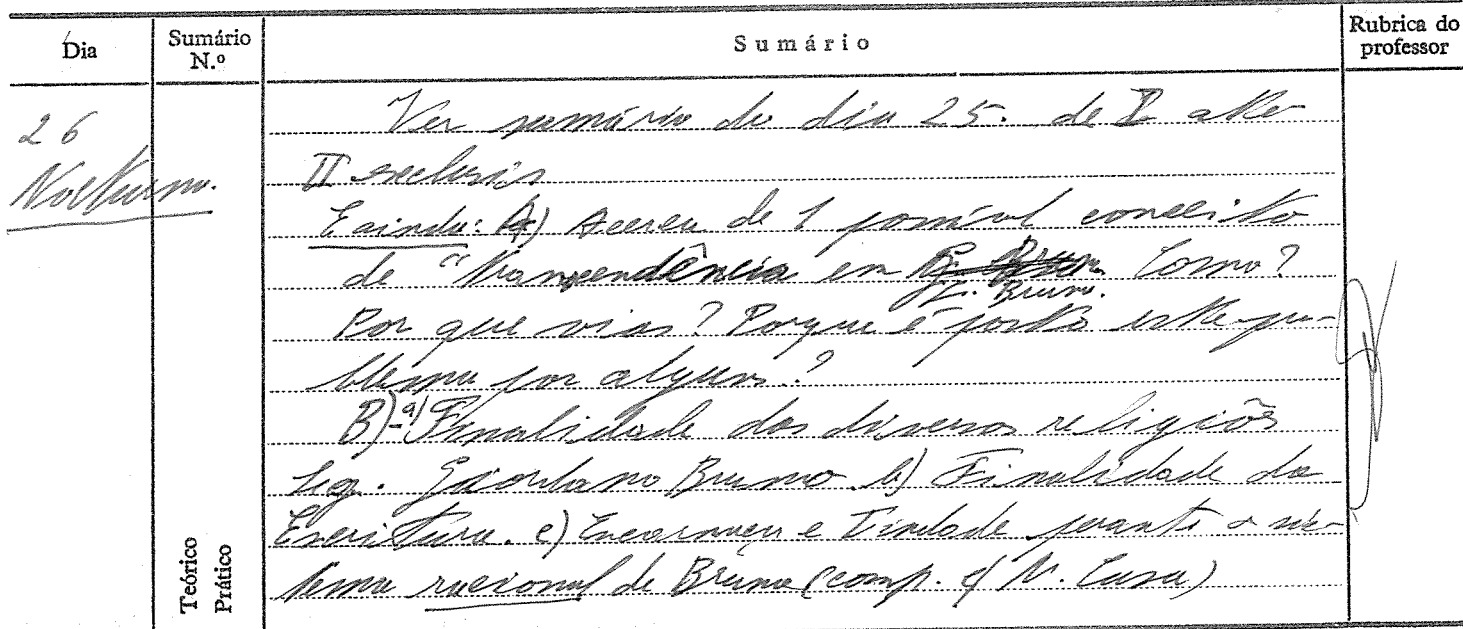 Dia
Sumário N.º
Sumário
Rubrica do professor
26
Nocturno.
Ver sumário do dia 25. de I até
II seclusis
E ainda: A) Acerca de 1 possível conceito
de "transcendência em G. Bruno. Como?
Por que vias? Porque é posto este pro-
blema por alguns?
B)-a) Finalidade das diversas religiões
seg. Giordano Bruno b) Finalidade da
Escritura. c) Encarnação e Trindade perante o sis-
tema racional de Bruno (comp. c/ N. Cusa)
Teórico
Prático